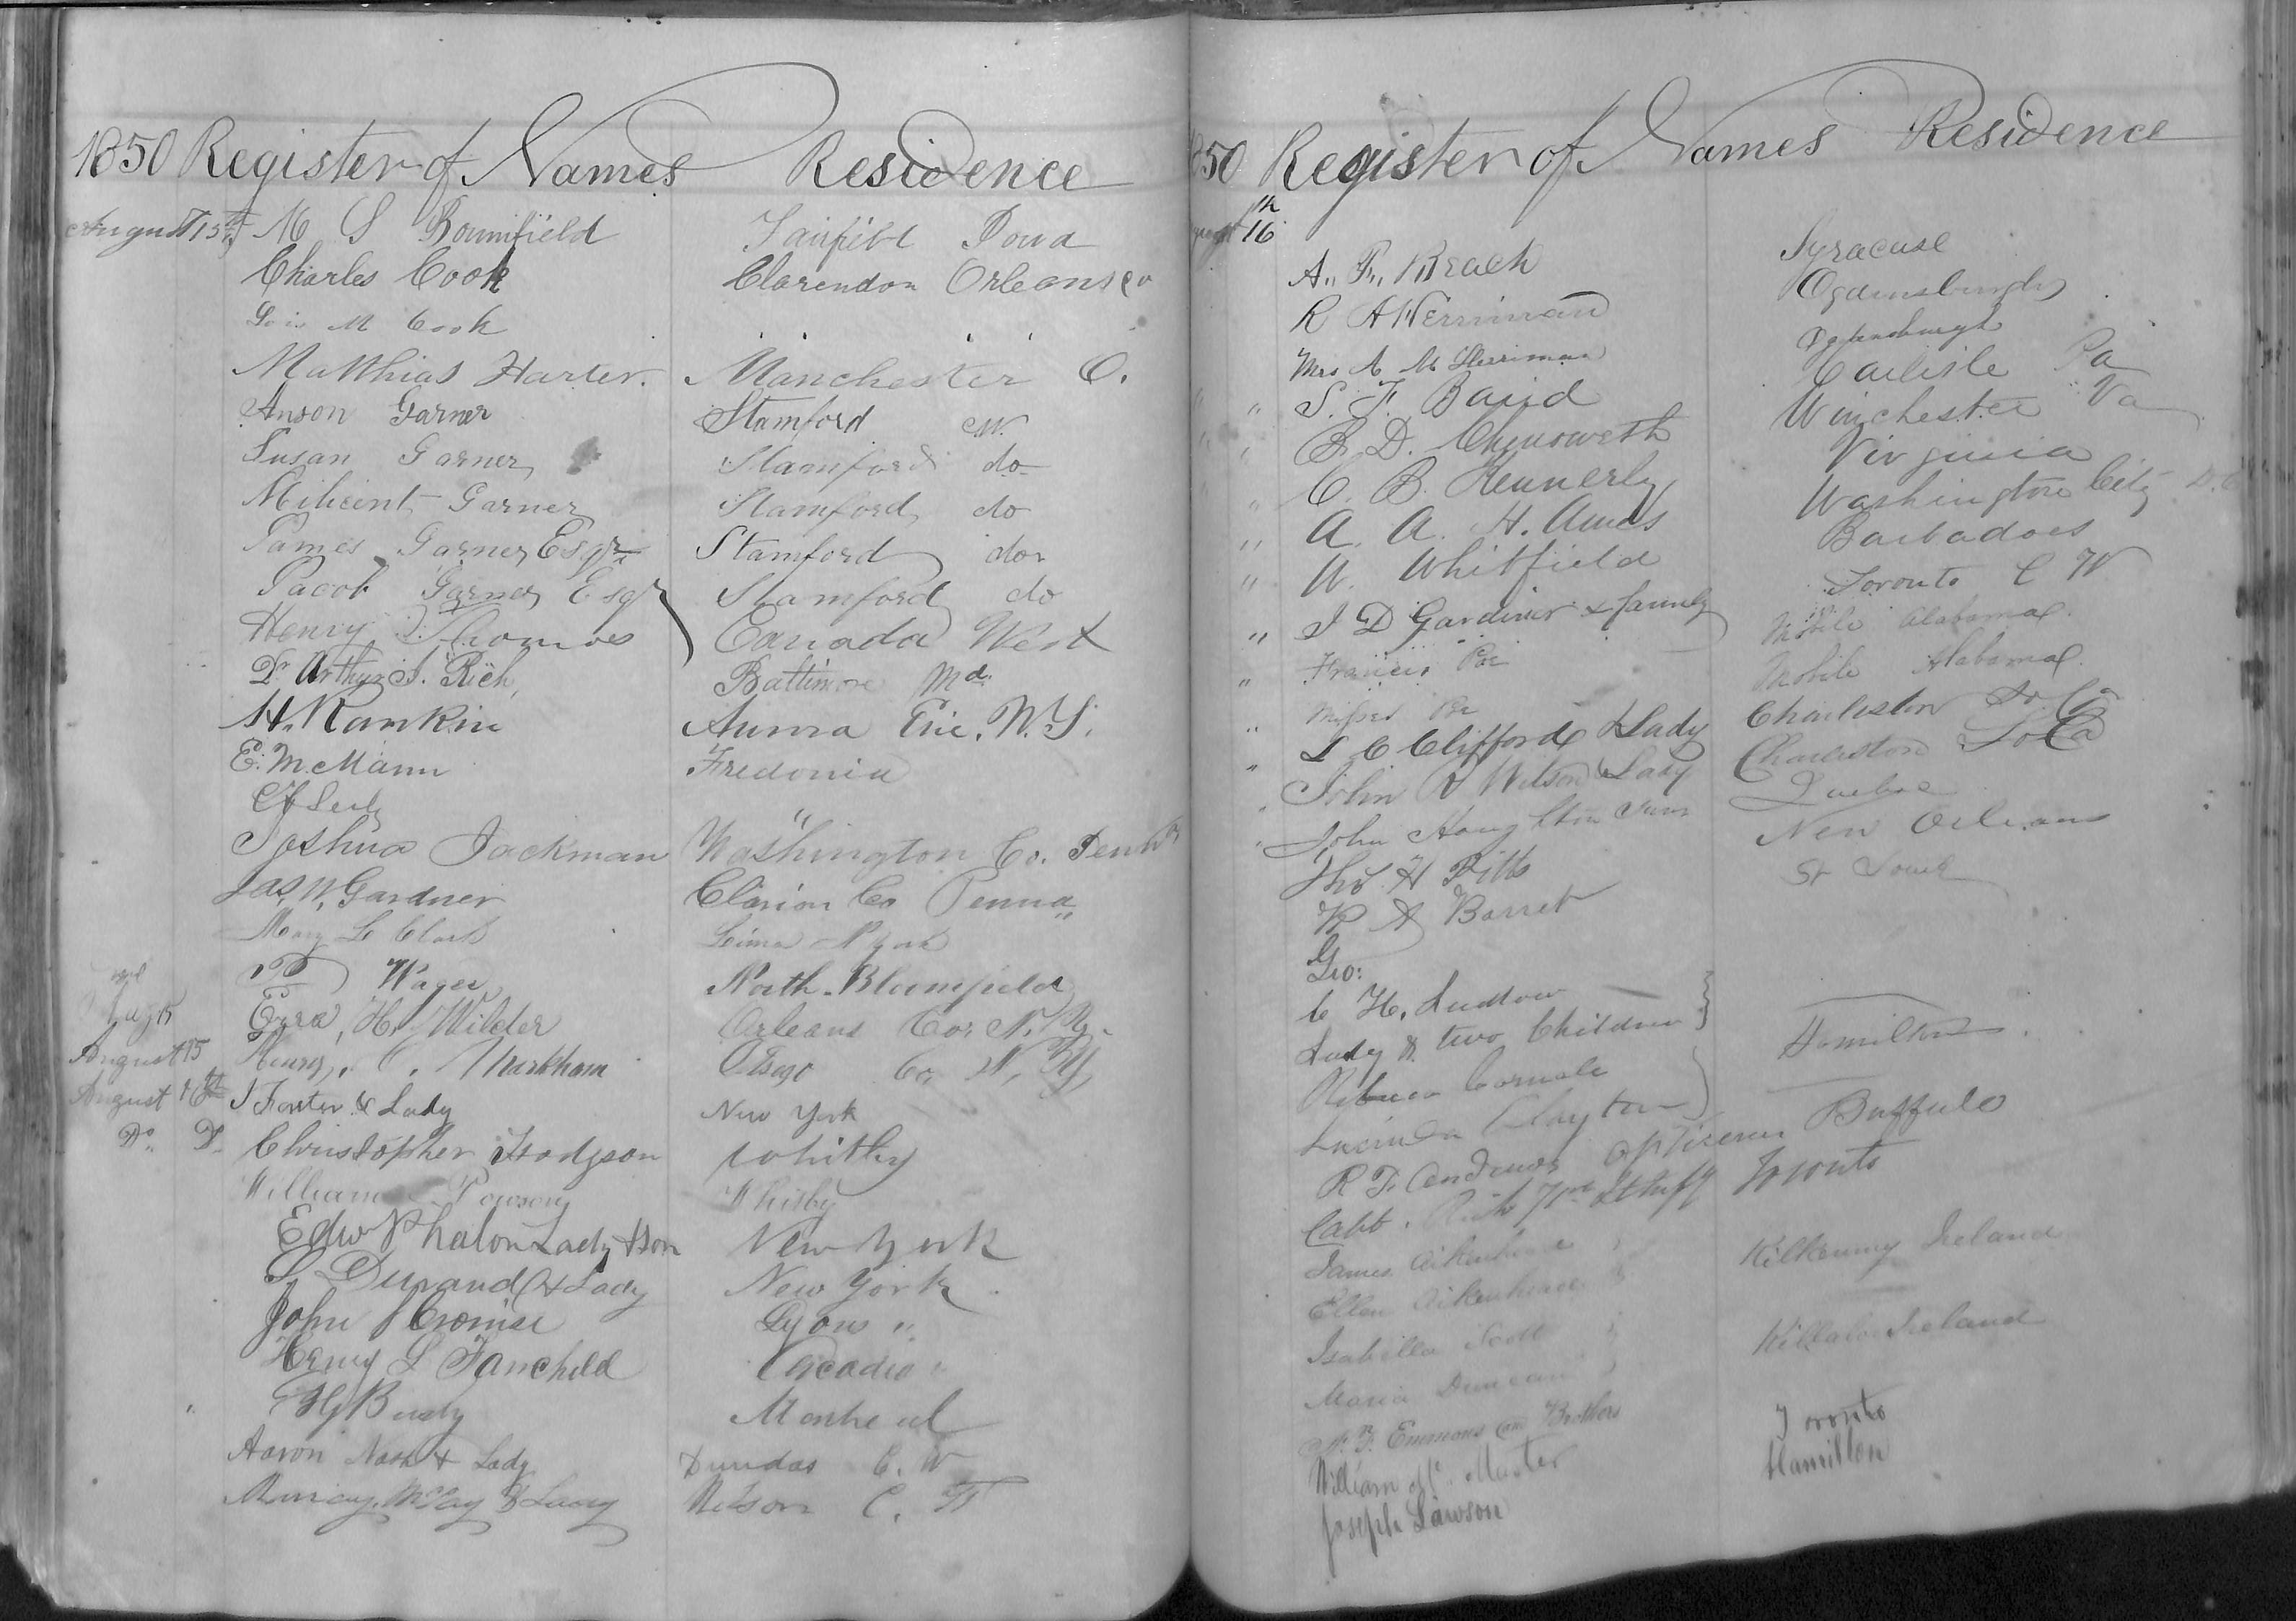 1850 Register of Names Residence
August 15th M S Bounifield Fairfield Iowa
Charles Cook Clarendon Orleans Co
M Cook
Matthias Harter. Manchester O.
Anson Garner Stamford CW.
Susan Garner Stamford do
Milicent Garner Stamford do
James Garner Esqr Stamford do
Jacob Garner Esqr Stamford do
Henry Canada West
Dr Arthur J. Rich, Baltimore Md.
H. Rankin Aurora Erie. N.Y.
E. McMann Fredonia
"
Joshua Jackman Washington Co. Penn
Jas. W. Gardner Clarion Co Penna
Mary L Clark Lima N York
Wager North Bloomfield
Aug 15 Ezra H. Wilder Orleans Co. N. Y.
August 15 Henry C. Markham Otsego Co. N. Y.
August 16th J Foster & Lady New York
Do. D. Christopher Hodgson Whitby
William Powson Whitby
Edw Phalon Lady & Son New York
Durand & Lady New York
John Cromise Lyons "
Henry L Fanchild Arcadia "
Montreal
Aaron Nash & Lady Dundas C. W
Murray McCay & Lady Nelson C. W
1850 Register of Names Residence
August 16th
A. F. Breack Syracuse
R A Herriman Ogdensburgh
Mrs A M Herriman Ogdensburgh
" S. F. Baird Carlisle Pa
" B. D. Chenoweth Winchester Va
" C. B. Kennerly Virginia
" A. A. H. Ames Washington City D.C
" W. Whitfield Barbadoes
" J D Gardiner & family Toronto C W
" Francis Poe Mobile Alabama
" Misses Poe Mobile Alabama
" L C Clifford & Lady Charleston So. Ca
" John R Wilson & Lady Charleston So Ca
" John Houghton Quebec
Thos. H Pitts New Orleans
R A Barret St Louis
Geo:
C H. Ludlow
Lady & two Children
Rebecca Hamilton
Lucinda Clayton
R. F. Andrews Buffalo
Capt. 71st Toronto
James Aikenhead Kilkenny Ireland
Ellen Aikenhead
Isabella Scott Killaloe Ireland
Maria Duncan
F. Emmons Brothers
William Mc. Master Toronto
Joseph Lawson Hamilton